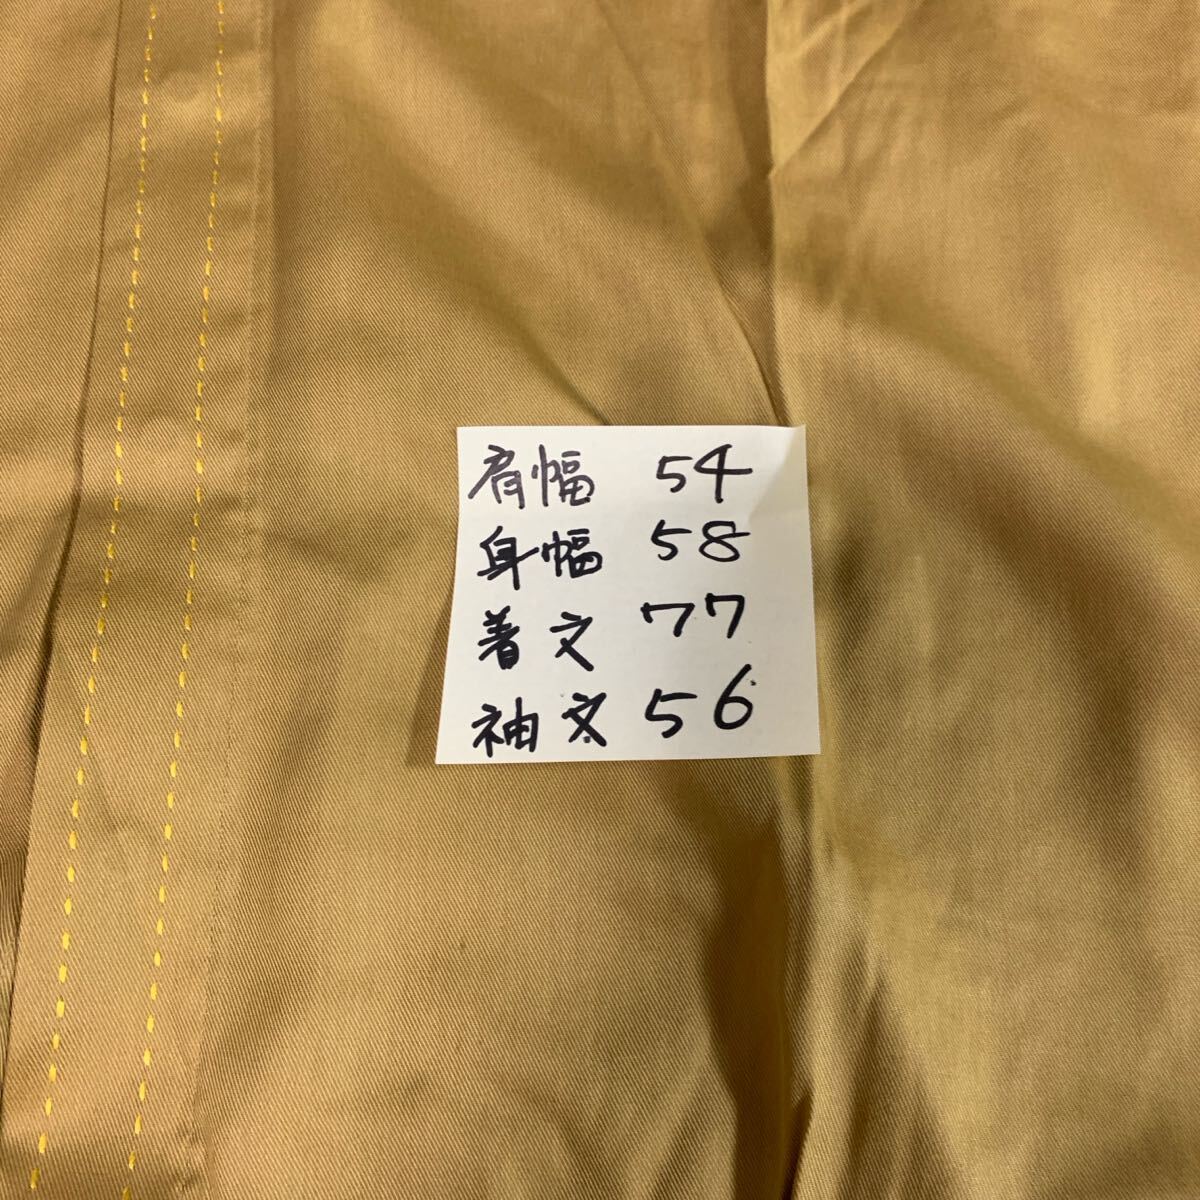 肩幅 54
身幅 58
着文 77
袖文 56